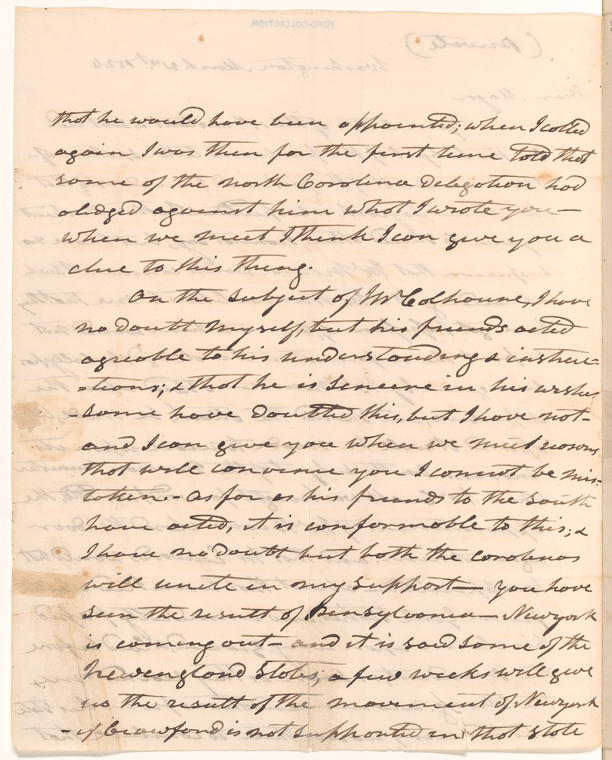 FORD COLLECTION
that he would have been appointed; when I called
again I was then for the first time told that
some of the north Carolina delegation had
aledged against him what I wrote you—
when we meet I think I can give you a
clue to this thing.
On the subject of Mr Calhoune, I have
no doubt myself, but his friends acted
agreable to his understanding & instruc-
-tions; & that he is Sincere in his wishes
-some have doubted this, but I have not-
and I can give you when we meet reasons
that will convince you I cannot be mis-
taken - as far as his friends to the South
have acted, it is conformable to this; &
I have no doubt but both the carolinas
will unite in my support— you have
seen the result of Pensylvania— Newyork
is coming out - and it is said some of the
Newengland States, a few weeks will give
us the result of the movement of Newyork
- if Crawford is not supported in that State